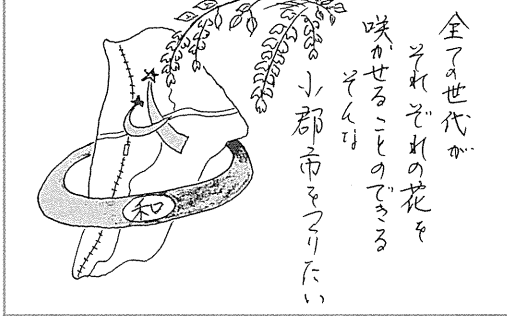 全ての世代が
それぞれの花を
咲かせることのできる
そんな
小郡市をつくりたい
和